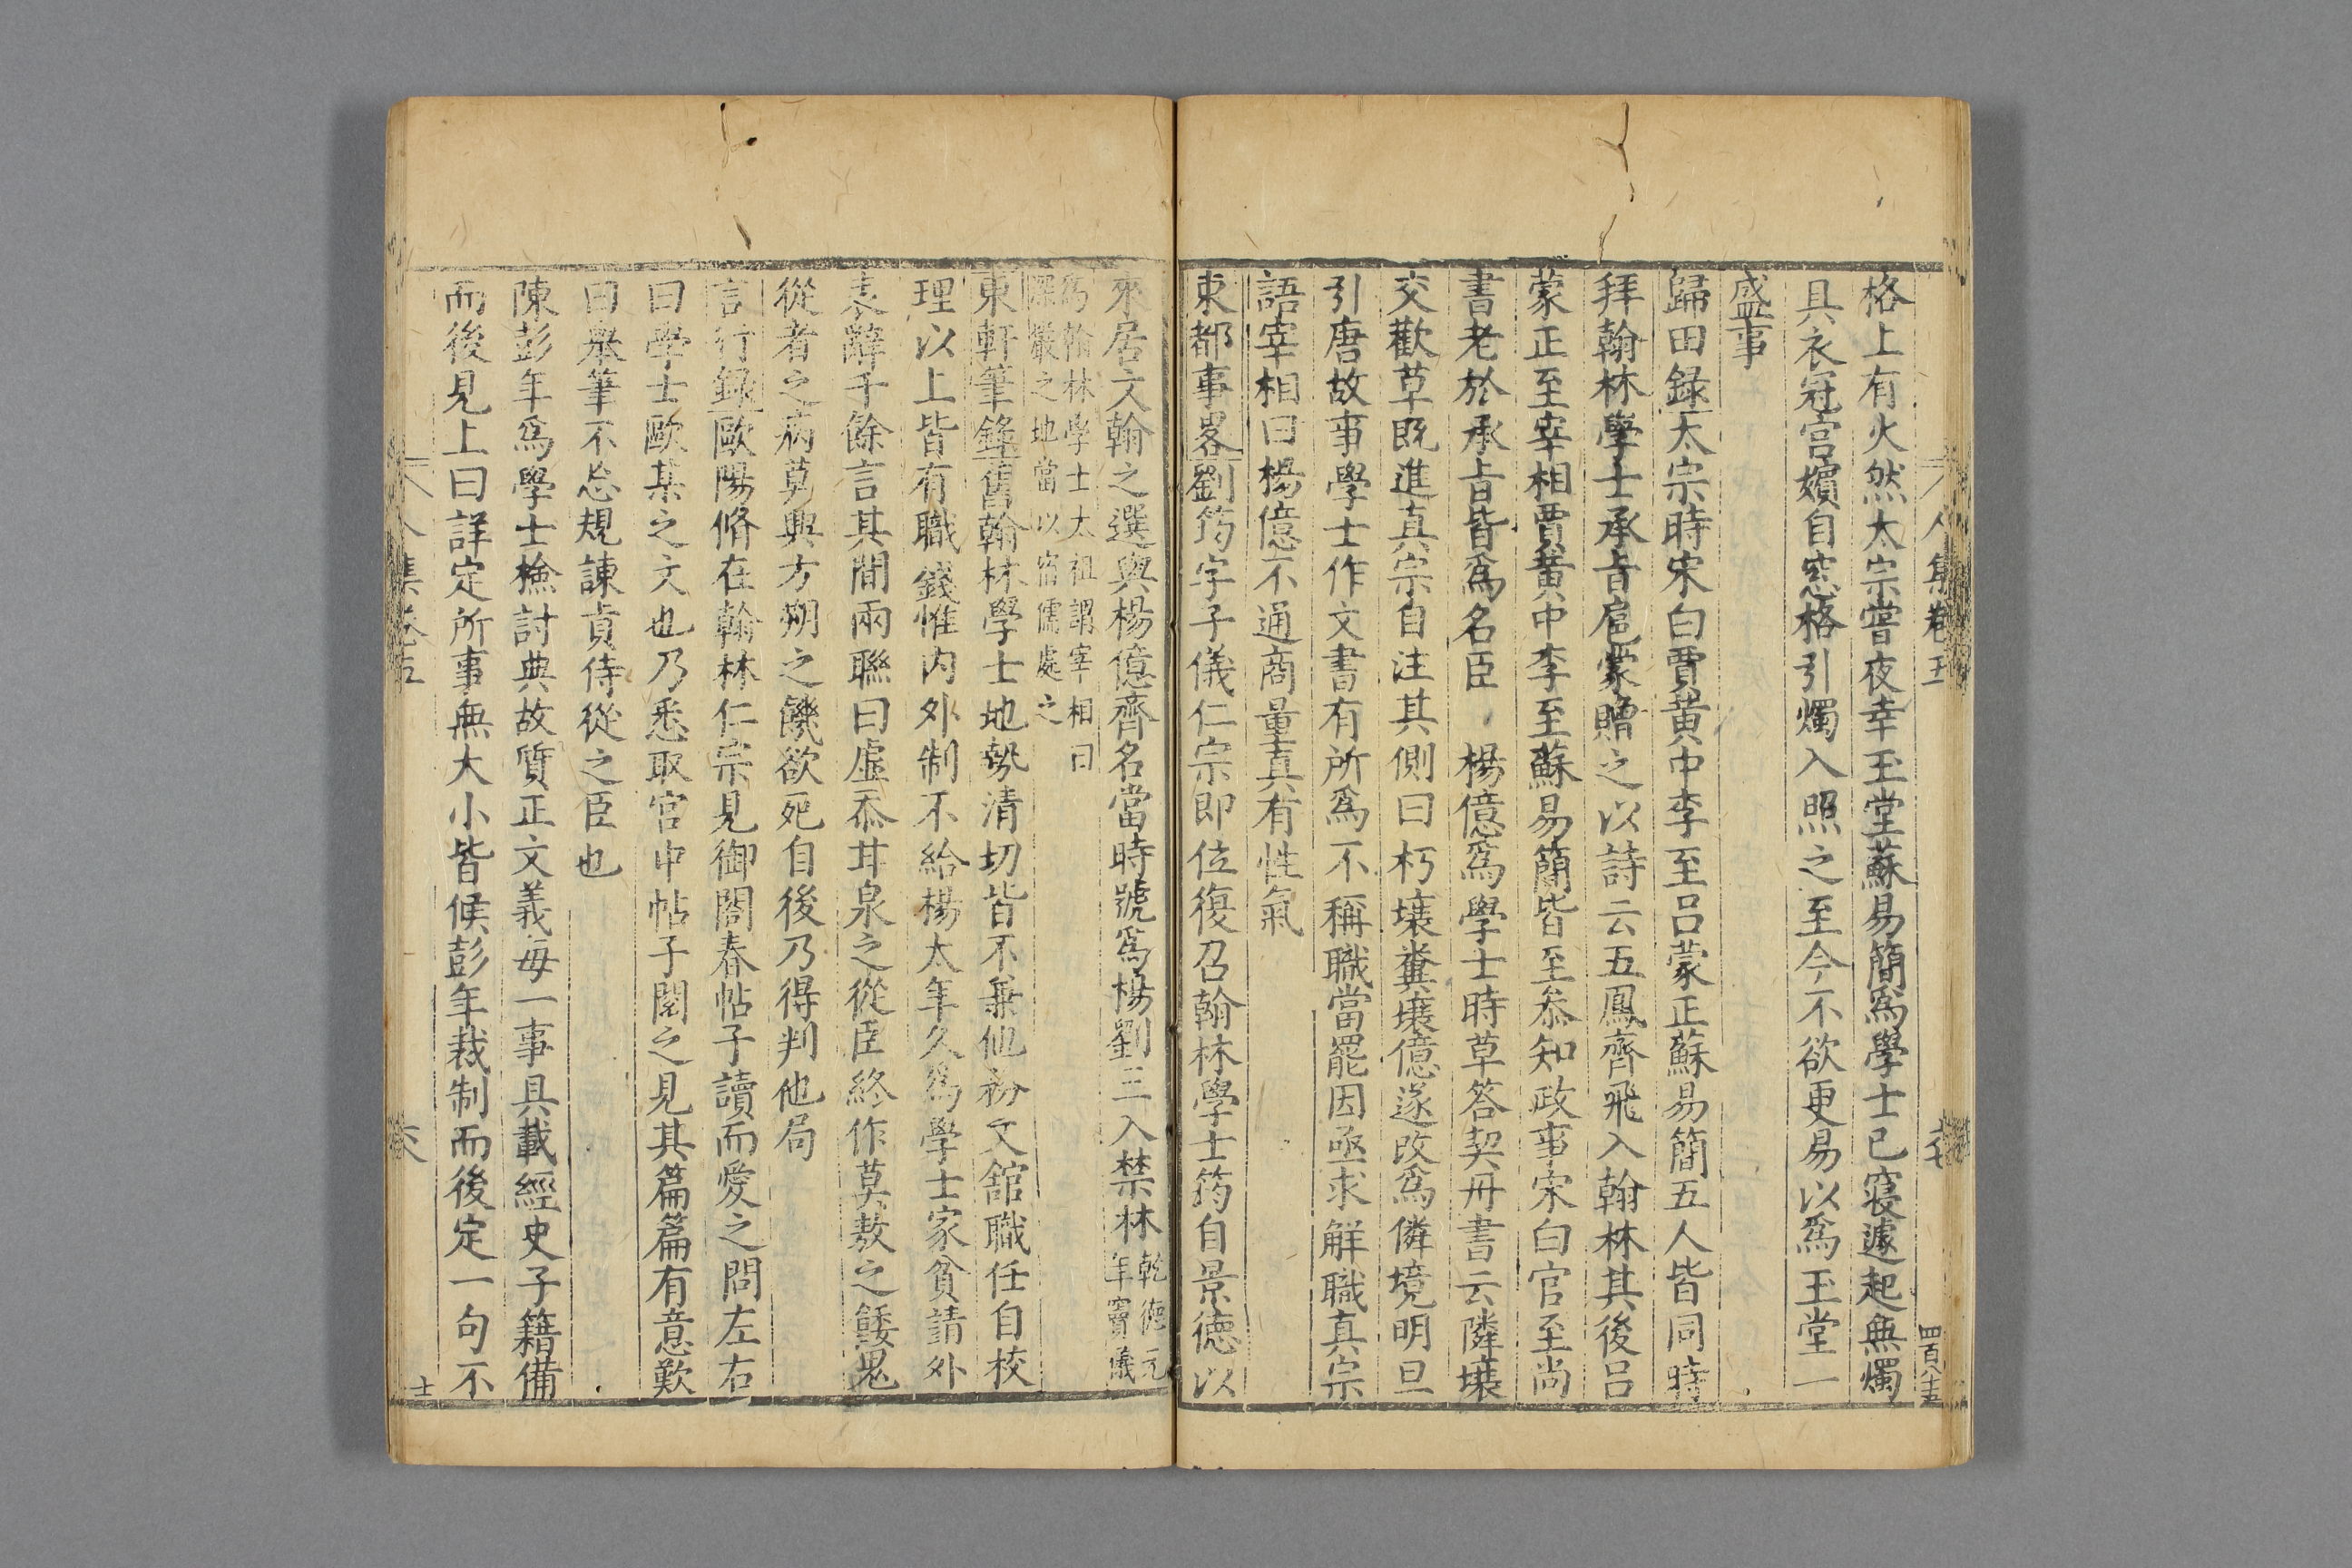 格上有火然太宗嘗夜幸玉堂蘇易簡爲學士已寢遽起無燭
具衣冠宮嬪自窓格引燭入照之至今不欲更易以爲玉堂一
盛事
歸田録太宗時宋白賈黄中李至呂蒙正蘇易簡五人皆同時
拜翰林學士承旨扈蒙贈之以詩云五鳳齊飛入翰林其後呂
蒙正至宰相賈黄中李至蘇易簡皆至叅知政事宋白官至尚
書老於承旨皆爲名臣 楊億爲學士時草答契丹書云隣壤
交歡草既進真宗自注其側曰朽壤糞壤億遂改爲隣境明旦
引唐故事學士作文書有所爲不稱職當罷因亟求解職真宗
語宰相曰楊億不通商量真有性氣
東都事畧劉筠字子儀仁宗即位復召翰林學士筠自景德以
來居文翰之選與楊億齊名當時號爲楊劉三入禁林乾德元年竇儀
爲翰林學士太祖謂宰相曰
深嚴之地當以宿儒處之
東軒筆錄舊翰林學士地勢清切皆不兼他務文舘職任自校
理以上皆有職錢惟内外制不給楊太年久爲學士家貧請外
表辭千餘言其間兩聯曰虛忝甘泉之從臣終作莫敖之餧鬼
從者之病莫興方朔之饑欲死自後乃得判他局
言行録歐陽脩在翰林仁宗見御閤春帖子讀而愛之問左右
曰學士歐某之文也乃悉取宮中帖子閱之見其篇篇有意歎
曰舉筆不忘規諫真侍從之臣也
陳彭年爲學士檢討典故質正文義每一事具載經史子籍備
而後見上曰詳定所事無大小皆候彭年裁制而後定一句不